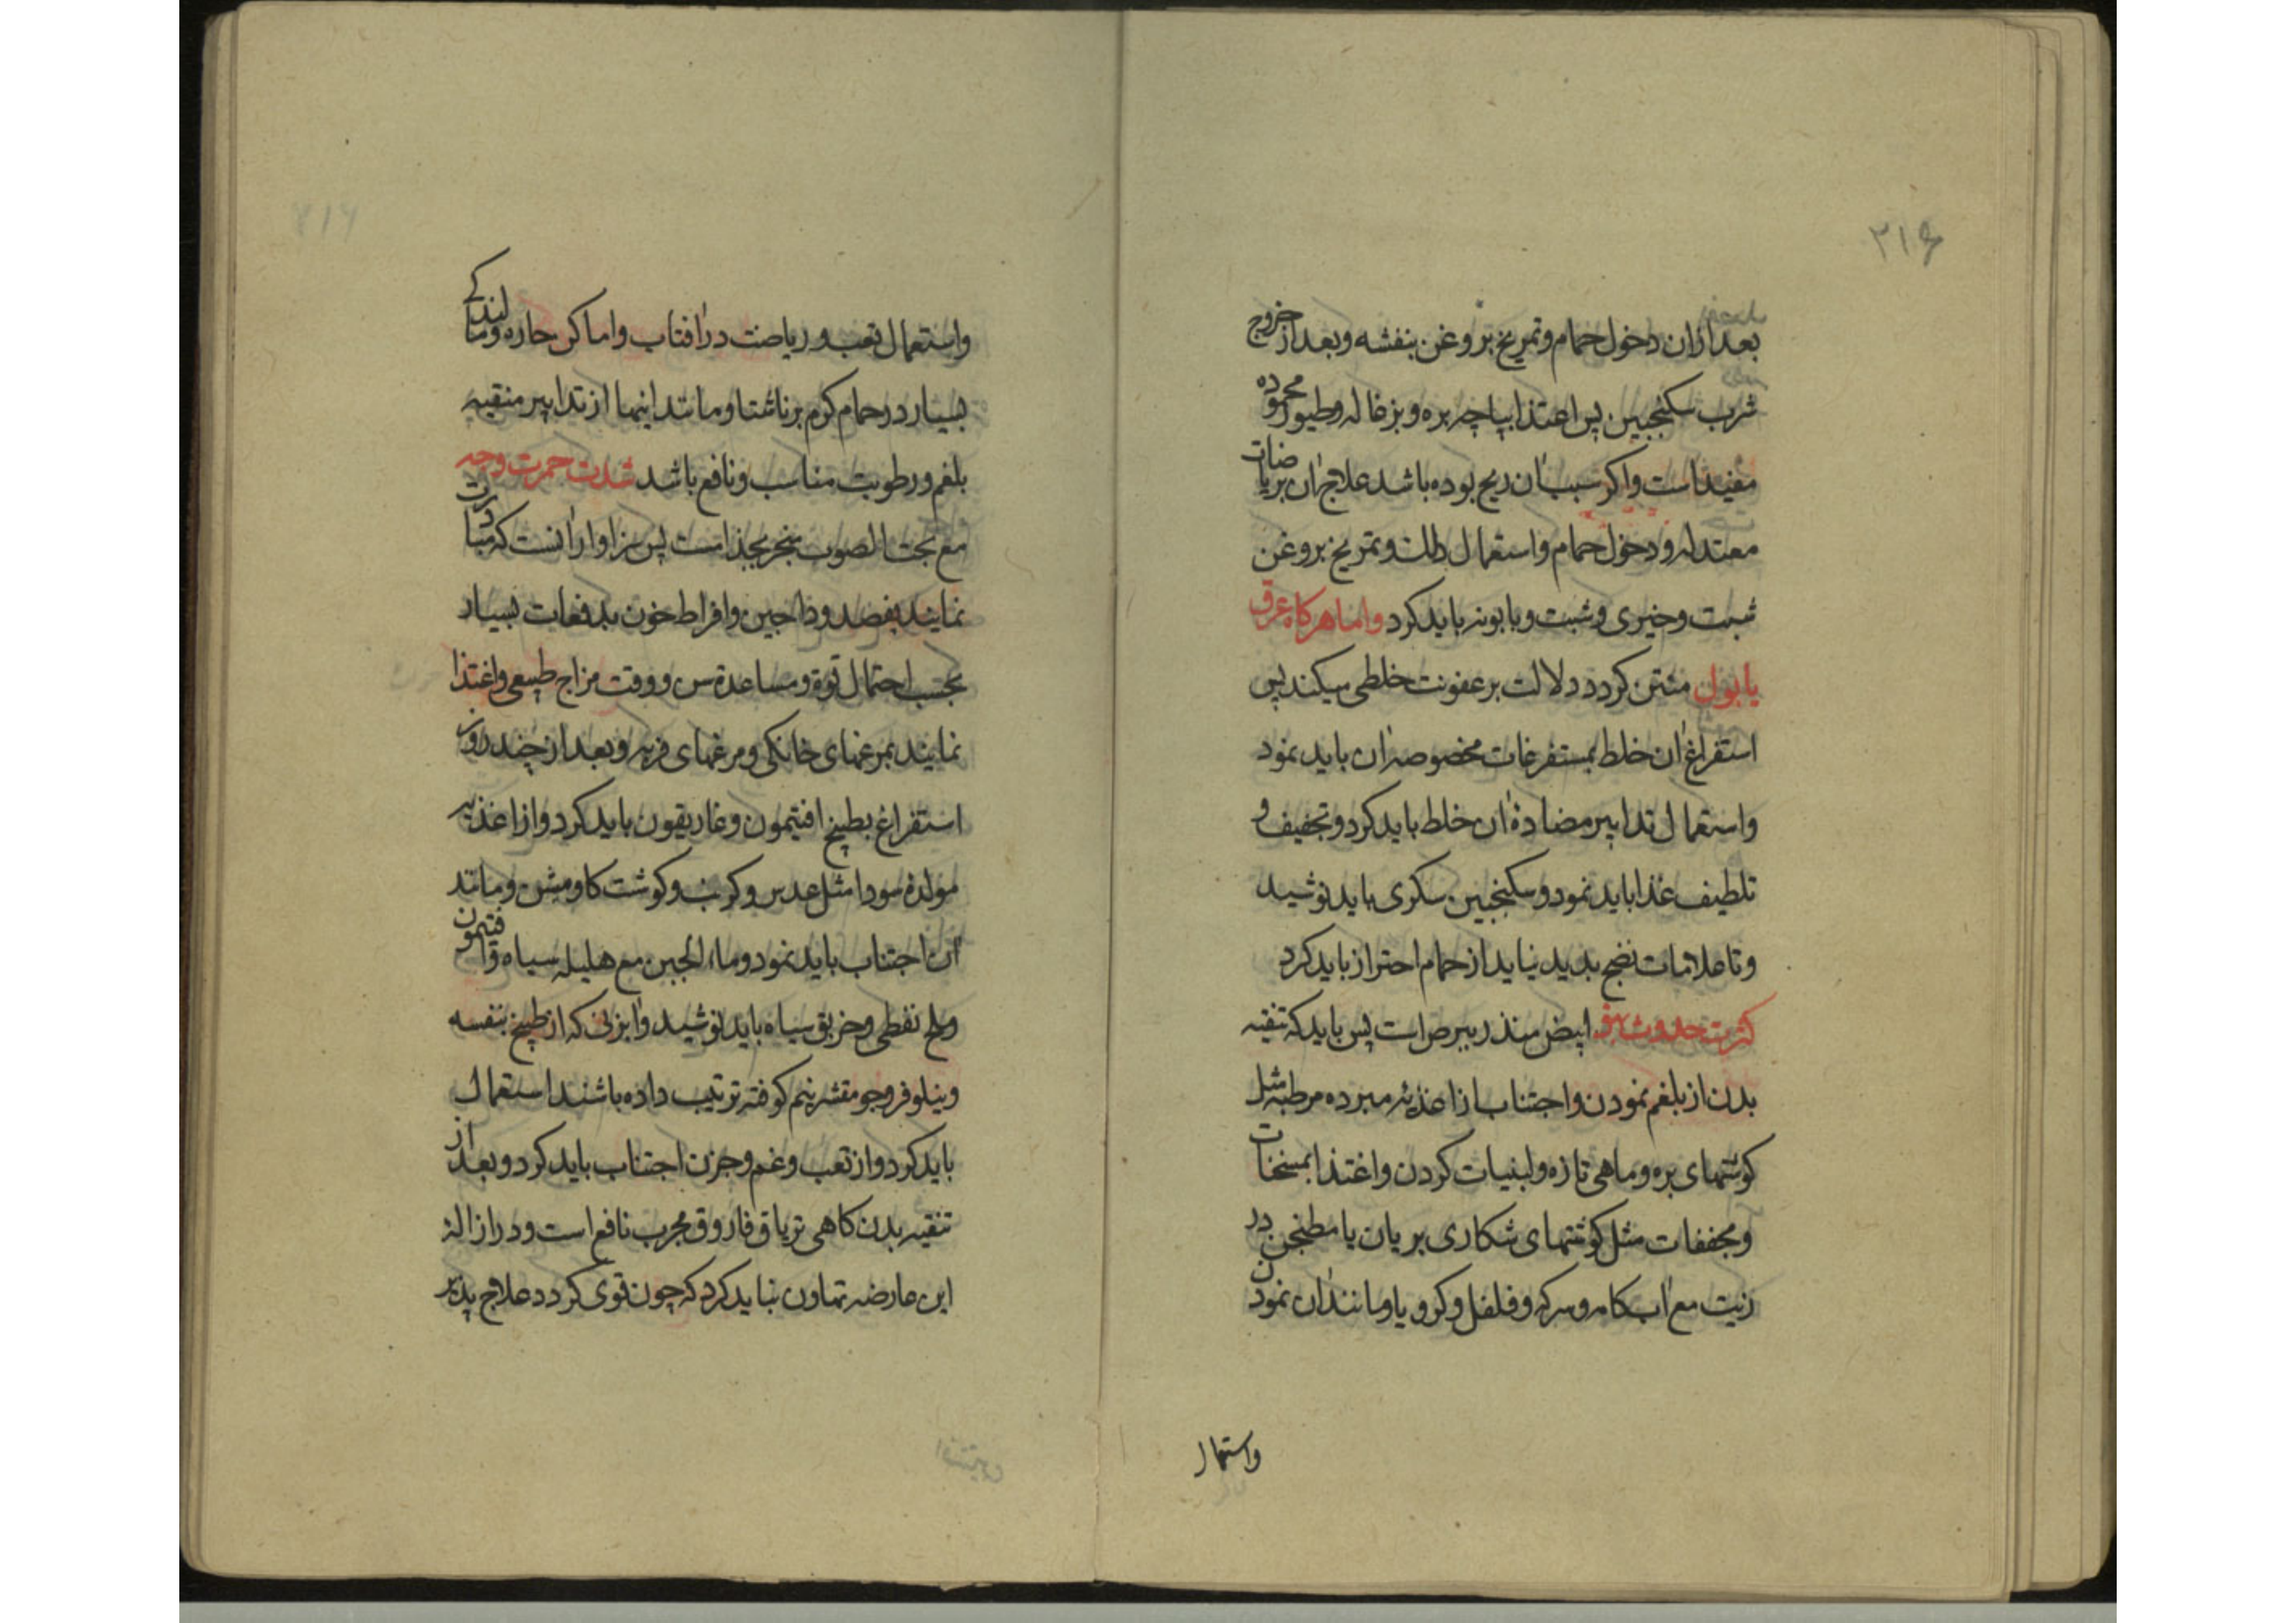 ۳۱۶
بعد ازان دخول حمام و تمریخ بروغن بنفشه و بعد از خروج
شرب سکنجبین پس اعتذا بپاچه بره و بزغاله و طیور محموده
مفید است و اکر سبب آن ریح بوده باشد علاج آن بریاضات
معتدله و دخول حمام و استعمال دلك و تمریخ بروغن
شبت و خیری و شبت و بابونه باید کرد و اما هرکاه عرق
یا بول منتن کردد دلالت بر عفونت خلطی میکند پس
استفراغ آن خلط بمستفرغات مخصوصه آن باید نمود
و استعمال تدابیر مضادۀ آن خلط باید کرد و تجفیف و
تلطیف غذا باید نمود و سکنجبین سکری باید نوشید
و تا علامات نضج پدید نیاید از حمام احتراز باید کرد
کثرت حدوث بهق ابیض منذر ببرص است پس باید که تنقیه
بدن از بلغم نمودن و اجتناب از اغذیه مبرده مرطبه مثل
کوشتهای بره و ماهی تازه و لبنیات کردن و اغتذا بمسخنات
و مجففات مثل کوشتهای شکاری بریان یا مطنجن در
زیت مع آب کامه و سرکه و فلفل و کرویا و مانند آن نمودن
واستمال
و استعمال تعب و ریاضت در آفتاب و اماکن حاره و ماندکی
بسیار در حمام کرم بر ناشتا و مانند اینها از تدابیر منقیه
بلغم و رطوبت مناسب و نافع باشد شدت حمرت وجه
مع بحت الصوب منجر بجذ است پس سزاوار آنست که مبادرت
نمایند بفصد وداجین و افراط خون بدفعات بسیار
بحسب احتمال قوة و مساعدة سن و وقت مزاج طبیعی و اغتذا
نمایند بمرغهای خانکی و مرغهای فربه و بعد از چند روز
استفراغ بطبیخ افتیمون و غاریقون باید کرد و از اغذیه
مولدۀ سودا مثل عدس و کرنب و کوشت کاومیش و مانند
آن اجتناب باید نمود و ماء الجبن مع هلیله سیاه و افتیمون
و ملح نفطی و خربق سیاه باید نوشید و ابزنی که از طبیخ بنفسه
و نیلوفر و جو مقشر نیم کوفته ترتیب داده باشند استعمال
باید کرد و از تعب و غم و حزن اجتناب باید کرد و بعد از
تنقیه بدن کاهی تریاق فاروق مجرب نافع است و در ازاله
این عارضه تهاون نباید کرد که چون قوی کردد علاج پذیر